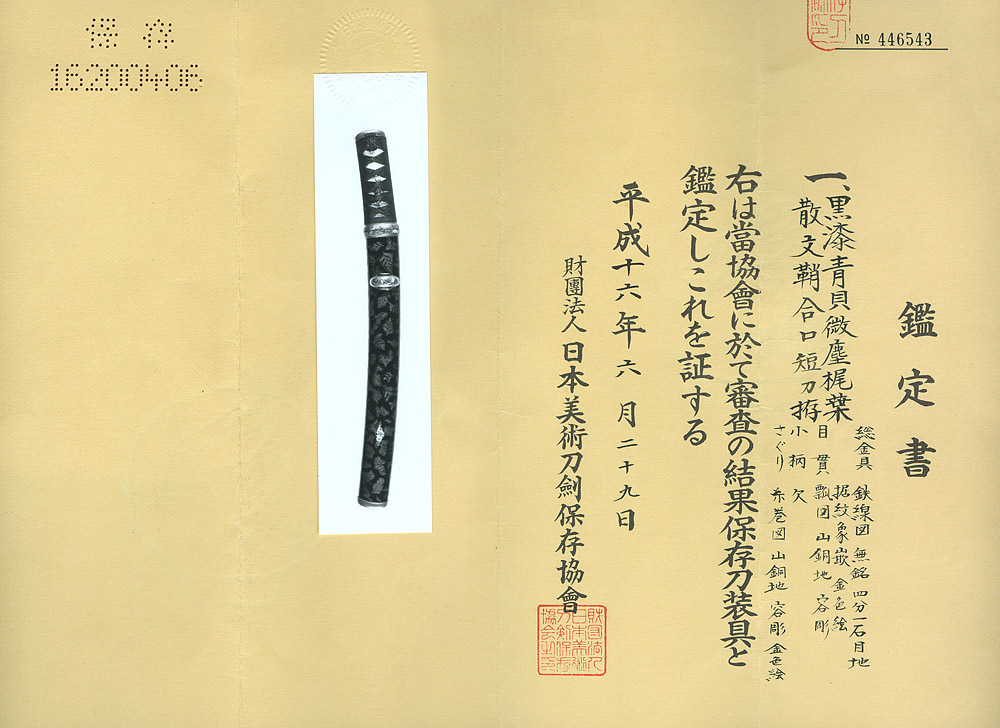 保存
16200406
№ 446543
鑑定書
一、黒漆青貝微塵梶葉
散文鞘合口短刀拵
総金具 鉄線図 無銘 四分一石目地
据紋象嵌 金色絵
目貫 瓢図 山銅地 容彫
小柄 欠
さぐり 糸巻図 山銅地 容彫 金色絵
右は當協會に於て審査の結果保存刀装具と
鑑定しこれを証する
平成十六年六月二十九日
財團法人日本美術刀劍保存協會